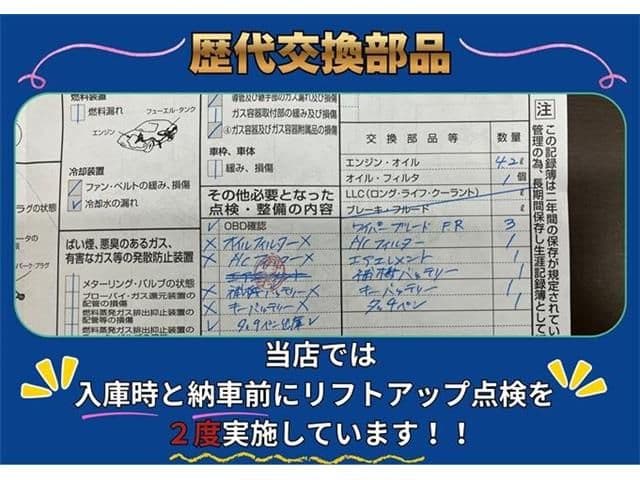 歴代交換部品
燃料装置
燃料漏れ
フューエル・タンク
エンジン
冷却装置
ファン・ベルトの緩み、損傷
冷却水の漏れ
ラグの状態
ーク・プラグ
ばい煙、悪臭のあるガス、
有害なガス等の発散防止装置
メターリング・バルブの状態
ブローバイ・ガス還元装置の
配管の損傷
燃料蒸発ガス排出抑止装置の
配管等の損傷
燃料蒸発ガス排出抑止装置の
導管及び継手部のガス漏れ及び損傷
ガス容器取付部の緩み及び損傷
④ガス容器及びガス容器附属品の損傷
車枠、車体
緩み、損傷
その他必要となった
点検・整備の内容
OBD確認
オイルフィルター
A/Cフィルター
補機バッテリー
キーバッテリー
タッチペン
交換部品等 数量
エンジン・オイル 4.2ℓ
オイル・フィルタ 1個
LLC(ロング・ライフ・クーラント) ℓ
ブレーキ・フルード ℓ
ワイパーブレード F.R 3
A/Cフィルター 1
エアエレメント 1
補機バッテリー 1
キーバッテリー 1
タッチペン 1
注
この記録簿は二年間の保存が規定されてい
管理の為、長期間保存し生涯記録簿として
当店では
入庫時と納車前にリフトアップ点検を
２度実施しています！！